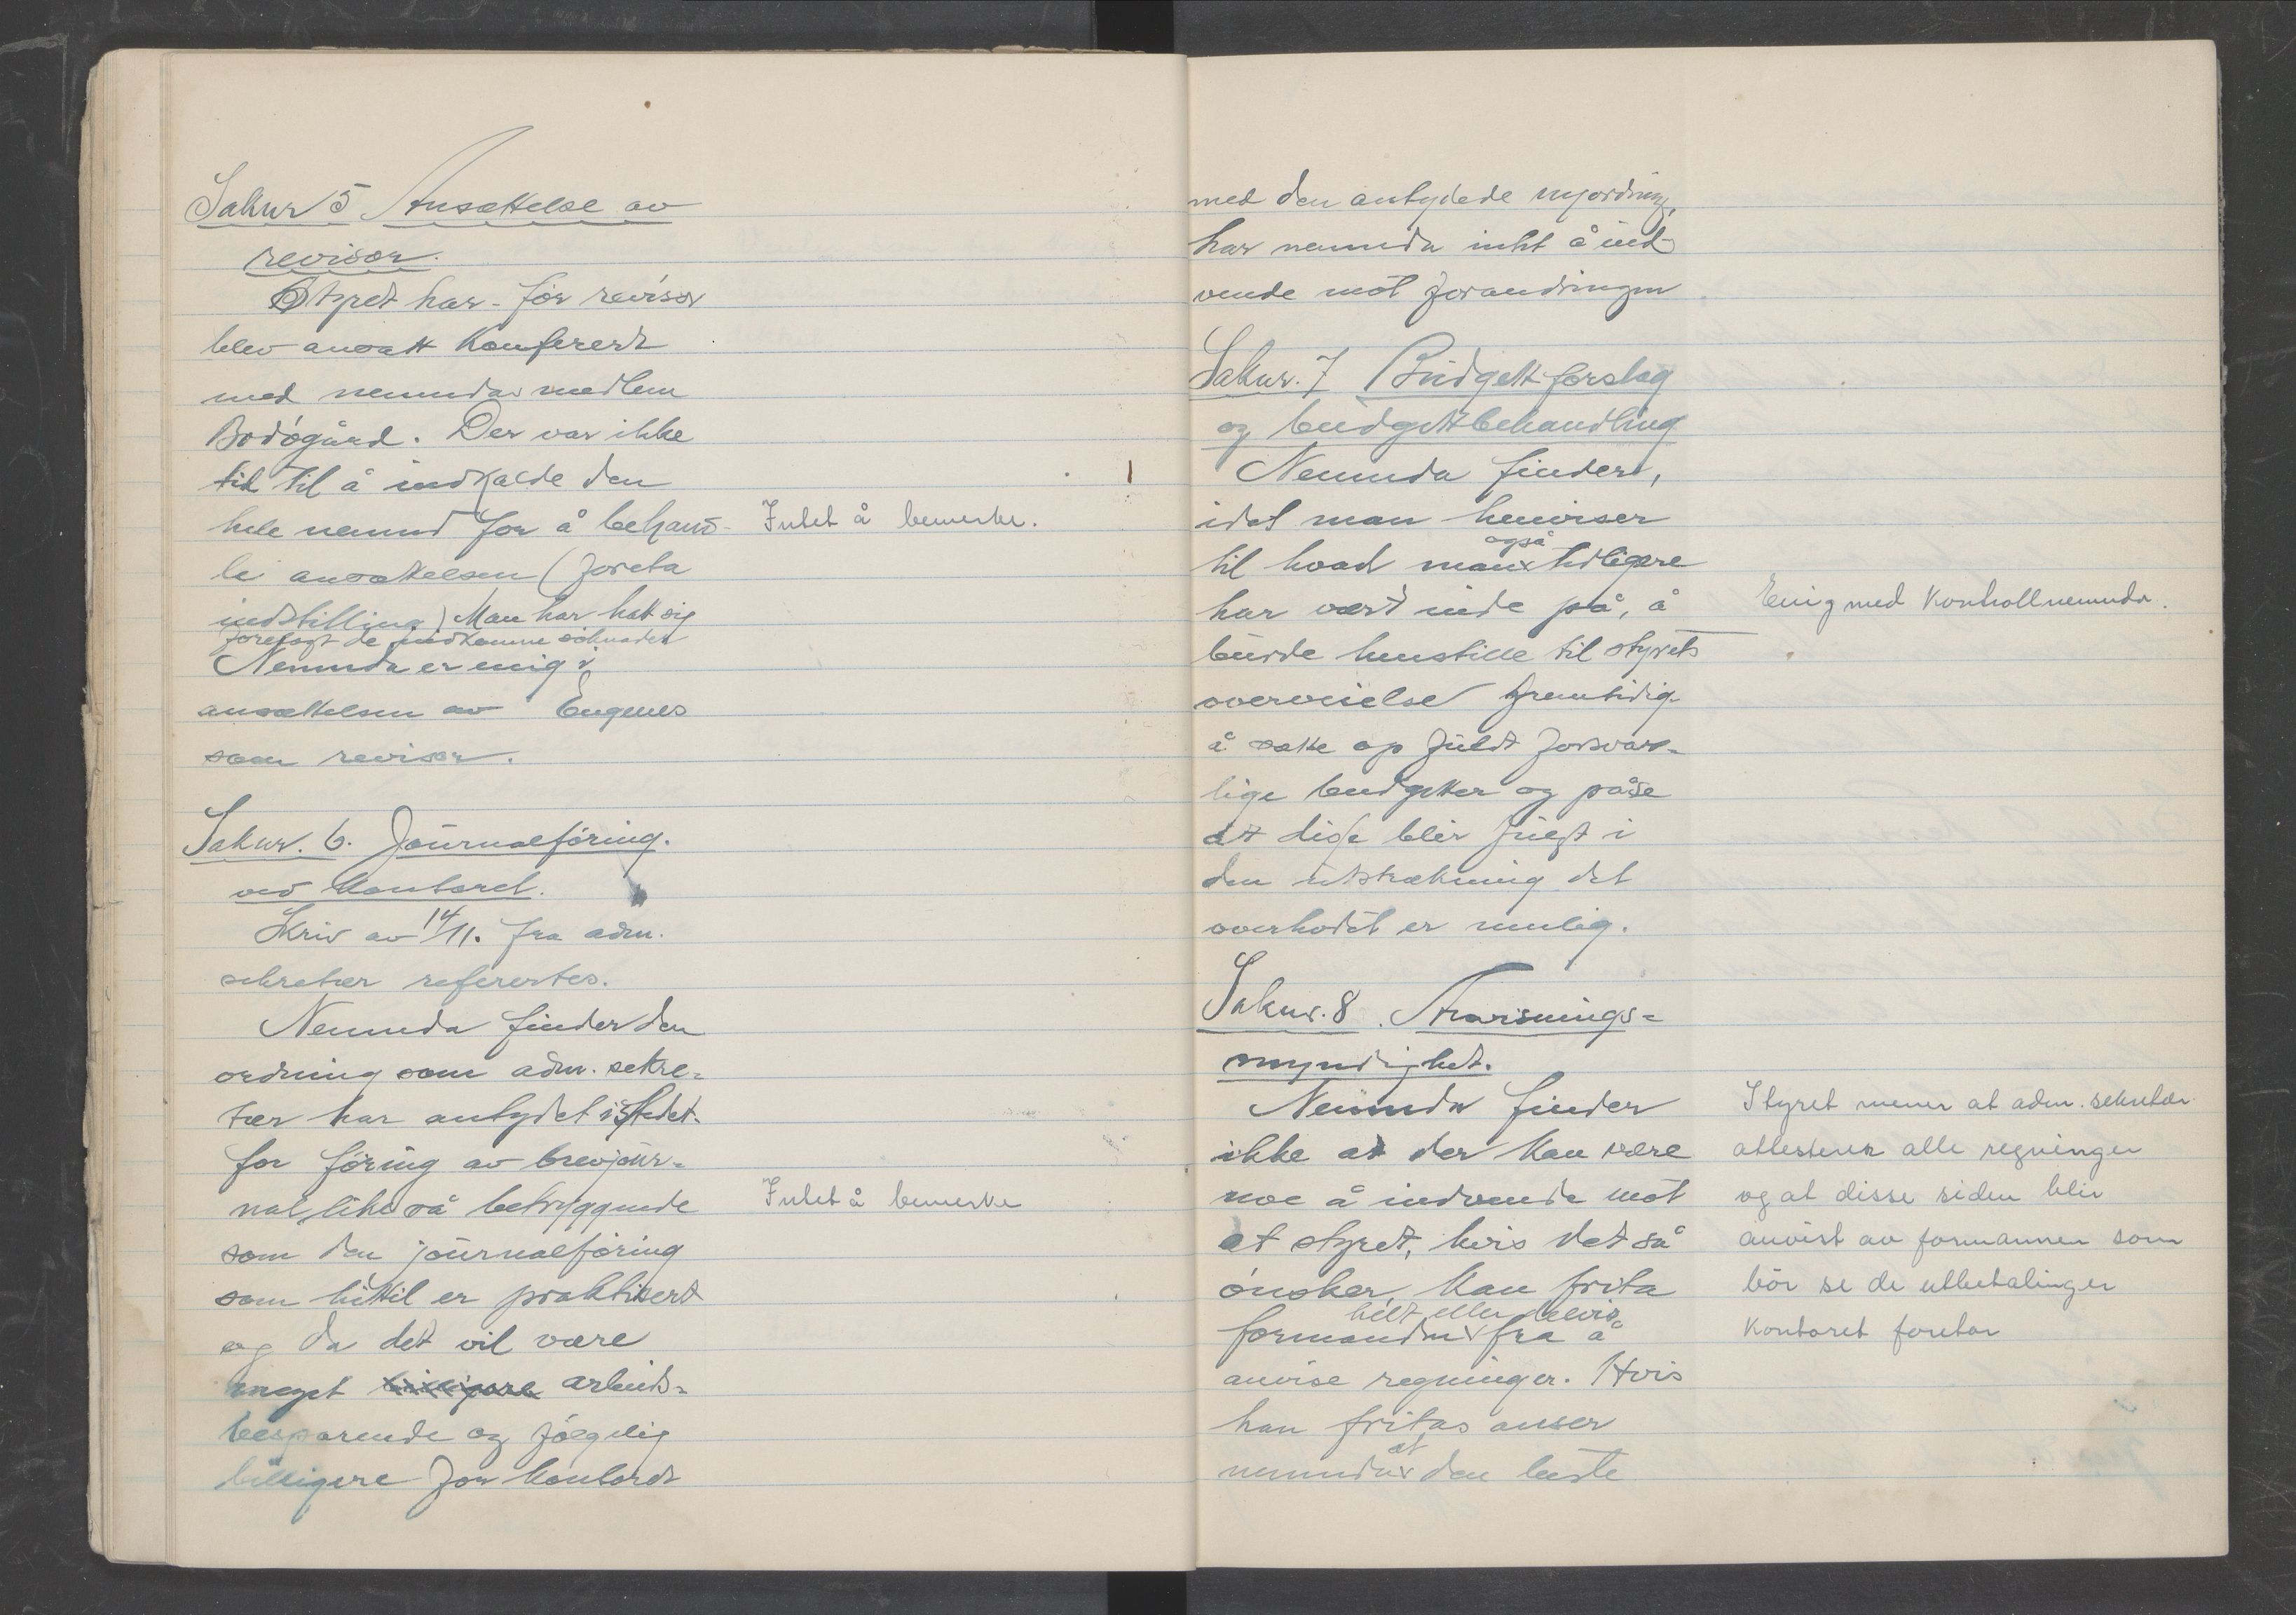 Saknr 5 Ansættelse av
revisor.
Styret har før revisor
blev ansatt konferert
med nemndas medlem
Bodøgård. Der var ikke
tid til å indkalde den
hele nemnd for å behand-
le ansættelsen (foreta
indstilling) Man har hatt sig
forelagt de indkomne søknader
Nemnda er enig i
ansættelsen av Engenes
som revisor.
Intet å bemerke.
Saknr. 6. Journalføring.
ved kontoret.
Skriv av 14/11. fra adm.
sekretær refertes.
Nemnda finder den
ordning som adm. sekre-
tær har antydet istedet-
for føring av brevjour-
nal like så betryggende
som den journalføring
som hittil er praktisert
og da det vil være
meget billigere arbeids-
besparende og følgelig
billigere for kontoret
Intet å bemerke
med den antydede nyordning,
har nemnda intet å ind-
vende mot forandringen
Saknr. 7 Budgettforslag
og budgettbehandling
Nemnda finder,
idet man henviser
til hvad man også tidligere
har vært inde på, å
burde henstille til styrets
overveielse fremtidig
å sætte op fuldt forsvar-
lige budgetter og påse
at disse blir fulgt i
den utstrækning det
overhodet er mulig.
Enig med Kontrollnemnda.
Saknr. 8. Anvisnings-
myndighet.
Nemnda finder
ikke at der kan være
noe å indvende mot
at styret, hvis det så
ønsker, kan frita
formanden helt eller delvis fra å
anvise regninger. Hvis
han fritas anser
nemnda at den beste
Styret mener at adm. sekretær
attesterer alle regninger
og at disse siden blir
anvist av formannen som
bør se de utbetalinger
kontoret foretar